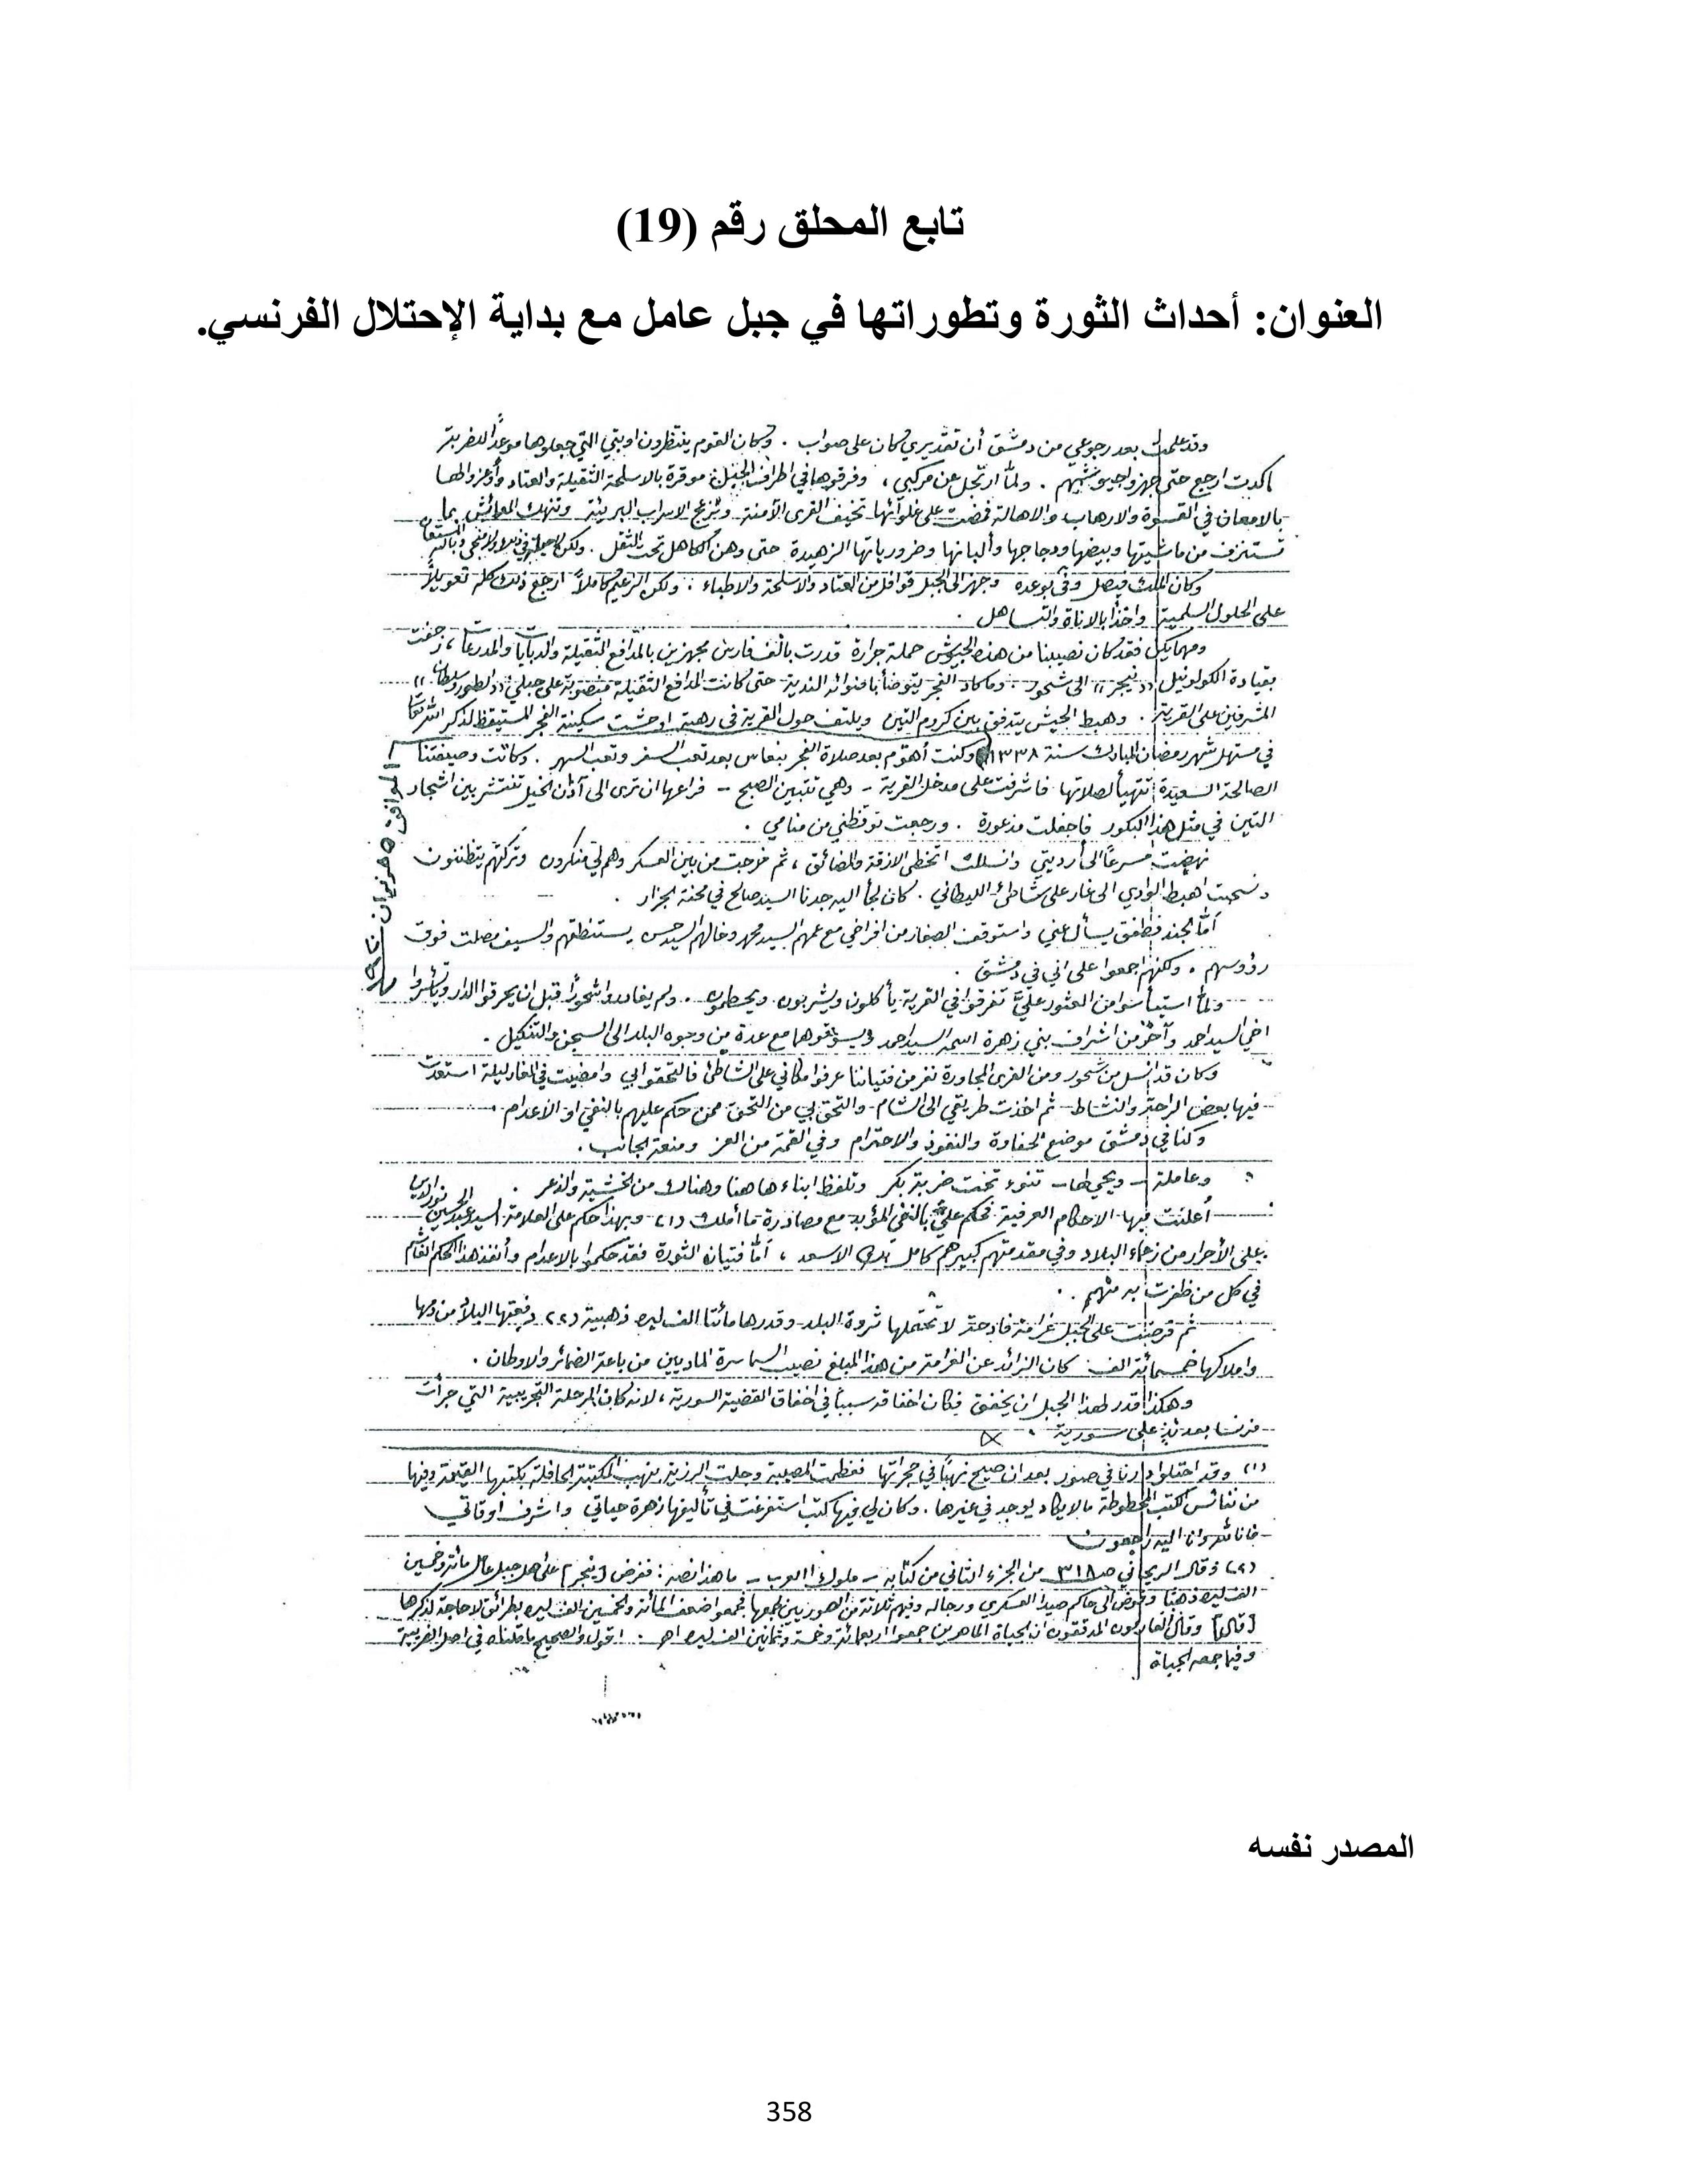 تابع المحلق رقم (19)
العنوان: أحداث الثورة وتطوراتها في جبل عامل مع بداية الإحتلال الفرنسي.
وقد علمت بعد رجوعي من دمشق أن تقديري كان على صواب . وكان القوم ينتظرون اوبتي التي جعلوها موعداً للضربة
ما كدت ارجع حتى جهزوا جيوشهم . ولمّا ارتجل عن مركبي ، وفرقوها في اطراف الجبل موقرة بالاسلحة الثقيلة والعتاد وأوعزوا لها
بالامعان في القسوة والارهاب والاهالة فمضت على غلوائها تخيف القرى الآمنة وتزعج الاسراب البريئة وتنهك المعائش بما
تستنزف من ماشيتها وبيضها ودجاجها وألبانها وضرورياتها الزهيدة حتى وهن الكاهل تحت الثقل . ولكن
وكان الملك فيصل وفى بوعده وجهز الى الجبل قوافل من العتاد والاسلحة والاطباء . ولكن الزعيم كاملاً ارجع ذلك كله تعويلاً
على الحلول السلمية واخذاً بالاناة والتساهل .
ومهما يكن فقد كان نصيبنا من هذه الجيوش حملة جرارة قدرت بألف فارس مجهزين بالمدافع الثقيلة والدبابات والمدرعات ، زحفت
بقيادة الكولونيل (( نيجر )) الى شحور . وما كاد الفجر يتوضأ بأضوائه الندية حتى كانت المدافع الثقيلة منصوبة على جبلي ((الطور وسلطان))
المشرفين على القرية . وهبط الجيش يتدفق بين كروم التين ويلتف حول القرية في رهبة اوحشت سكينة الفجر المستيقظ لذكر الله تعالى
في مستهل شهر رمضان المبارك سنة ١٣٣٨ وكنت أهوّم بعد صلاة الفجر بنعاس بعد تعب السفر وتعب السهر . وكانت وصيفتنا
الموافق ٥ حزيران ١٩٢٠
الصالحة السعيدة تتهيأ لصلاتها فاشرفت على مدخل القرية - وهي تتبين الصبح - فراعها ان ترى الى آذان الخيل تنتشر بين اشجار
التين في مثل هذا البكور فاجفلت مذعورة . ورجعت توقظني من منامي .
نهضت مسرعاً الى أرديتي وانسللت اتخطى الازقة والمضائق ، ثم خرجت من بين العسكر وهم لي منكرون وتركتهم يتظننون
وسحبت اهبط الوادي الى غار على شاطئ الليطاني . كان لجأ اليه جدنا السيد صالح في محنة الجزار .
أمّا الجند فطفق يسأل عني واستوقف الصغار من افراخي مع عمهم السيد محمد وخالهم السيد حسن يستنطقهم والسيف مصلت فوق
رؤوسهم . ولكنهم اجمعوا على اني في دمشق .
ولمّا استيأسوا من العثور عليّ تفرقوا في القرية يأكلون ويشربون ويحطمون . ولم يغادروا شحوراً قبل ان يحرقوا الدار ويأسروا
اخي السيد احمد وآخر من اشراف بني زهرة اسمه السيد احمد ويسوقوهما مع عدة من وجوه البلد الى السجن والتنكيل .
وكان قد انسل من شحور ومن القرى المجاورة نفر من فتياننا عرفوا مكاني على الشاطئ فالتحقوا بي وامضيت في الغار ليلة استعدت
فيها بعض الراحة والنشاط ثم اخذت طريقي الى الشام والتحق بي من التحق ممن حكم عليهم بالنفي او الاعدام .
وكنا في دمشق موضع الحفاوة والنفوذ والاحترام وفي القمة من العز ومنعة الجانب .
وعاملة - ويحي لها - تنوء تحت ضربة بكر وتلفظ ابناءها هنا وهناك من الخشية والذعر .
أعلنت فيها الاحكام العرفية فحكم عليّ بالنفي المؤبد مع مصادرة ما أملك (١) وبهذا حكم على العلامة السيد عبد الحسين نور الدين
على الأحرار من زعماء البلاد وفي مقدمتهم كبيرهم كامل بك الاسعد ، أمّا فتيان الثورة فقد حكموا بالاعدام وأنفذ هذا الحكم القاسي
في كل من ظفرت به منهم .
ثم فرضت على الجبل غرامة فادحة لا تحتملها ثروة البلد وقدرها مائتا الف ليرة ذهبية (٢) دفعتها البلاد من دمها
واملاكها خمسمائة الف كان الزائد عن الغرامة من هذا المبلغ نصيب السماسرة الماديين من باعة الضمائر والاوطان .
وهكذا قدر لهذا الجبل ان يخفق فكان اخفاقه سبباً في اخفاق القضية السورية ، لانه كان المرحلة التجريبية التي جرأت
فرنسا بعدئذٍ على سورية .
(١) وقد احتلوا دارنا في صور بعد ان صيح نهباً في حجراتها فعظمت المصيبة وجلت الرزية بنهب المكتبة الحافلة بكتبها القيمة وفيها
من نفائس الكتب المخطوطة ما لا يكاد يوجد في غيرها . وكان لي فيها كتب استفرغت في تأليفها زهرة حياتي واشرف اوقاتي
فانا لله وانا اليه راجعون
(٢) وقال الريحاني ص ٣١٨ من الجزء الثاني من كتابه - ملوك العرب - ما هذا نصه : ففرض [نيجر] على اهل جبل عامل مائة وخمسين
الف ليرة ذهباً وفوض الى حاكم صيدا العسكري ورجاله وفيهم ثلاثة من الصوريين لجمعها فجمعوا ضعف المائة والخمسين الف ليرة بطرائق لا حاجة لذكرها
[قال] وقال العارفون المدققون ان الجباة الماهرين جمعوا اربعمائة وخمسة وثمانين الف ليرة اهـ . اقول والصحيح ما قلناه في اصل الضريبة
وفيما جمعه الجباة
المصدر نفسه
358